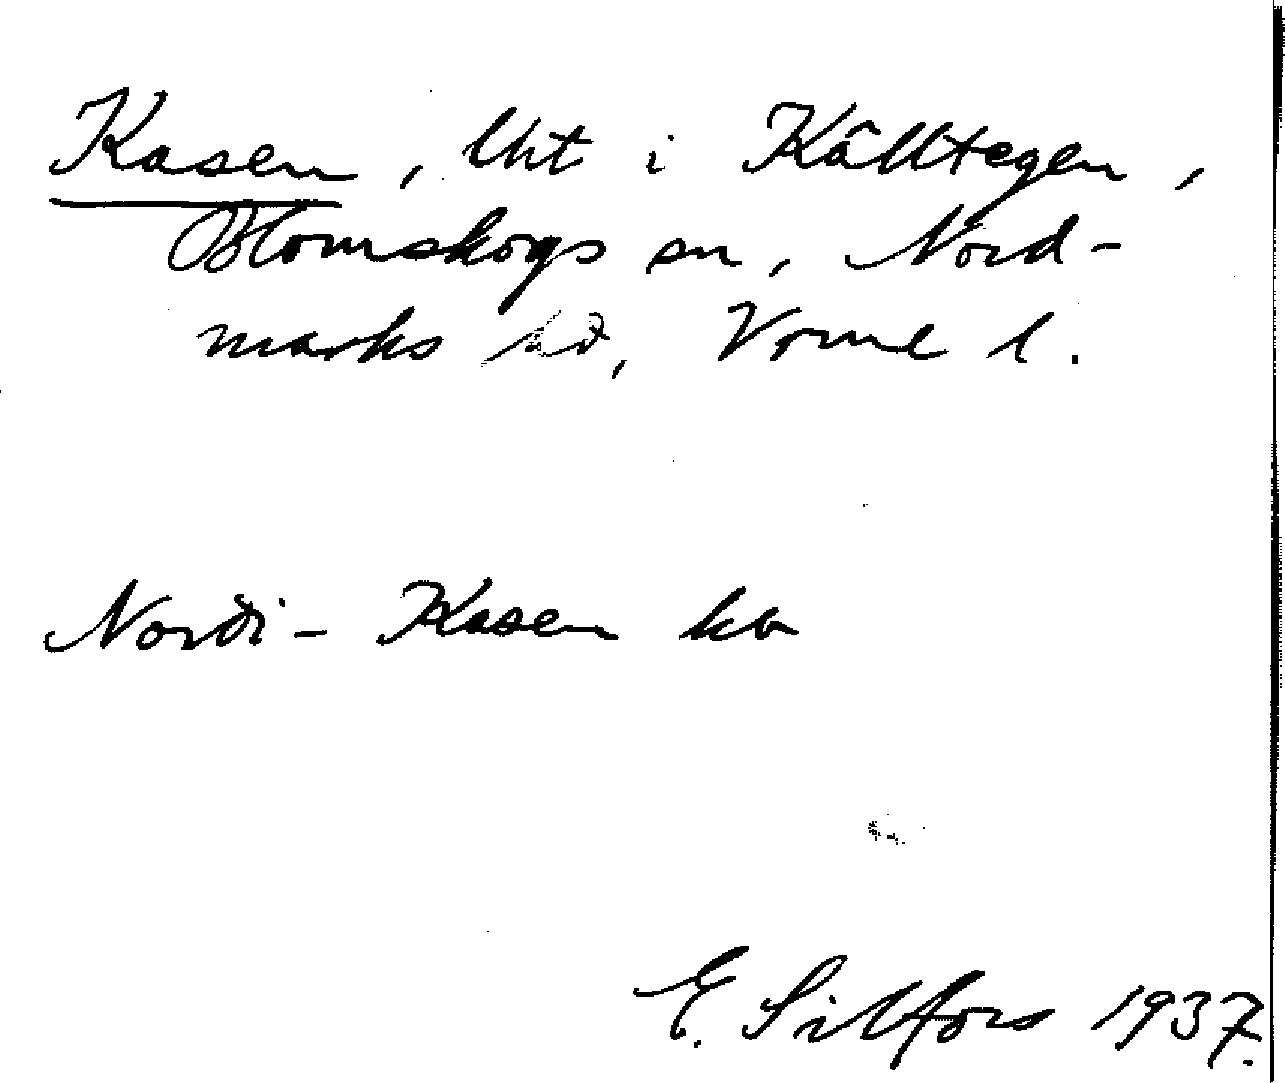 Kasen, lht i Källtegen,
Blomskogs sn, Nord-
marks hd, Vrml l.
Nordi-Kasen kb
E. Silfors 1937.